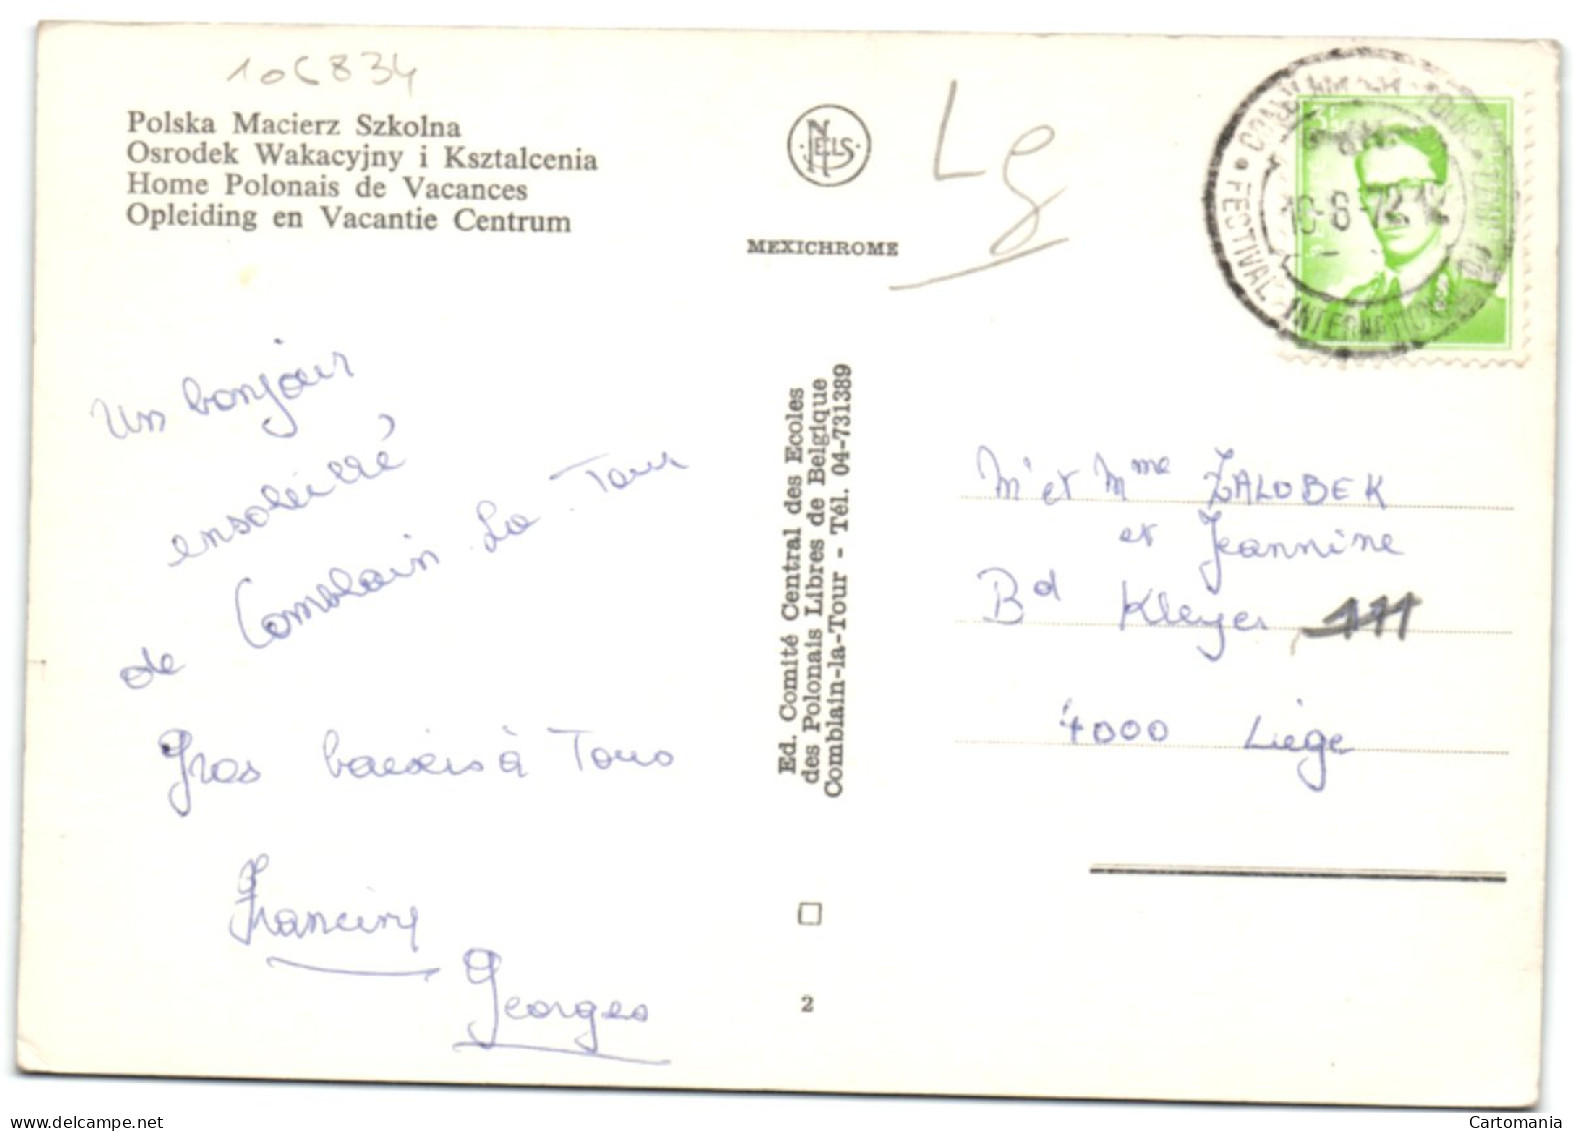 106834
Polska Macierz Szkolna
Osrodek Wakacyjny i Ksztalcenia
Home Polonais de Vacances
Opleiding en Vacantie Centrum
NELS
MEXICHROME
Lg
10-8-72 12
FESTIVAL INTERNATIONAL
Un bonjour
ensoleillé
de Comblain La Tour
Gros baisers à Tous
Francine
Georges
Ed. Comité Central des Ecoles
des Polonais Libres de Belgique
Comblain-la-Tour - Tél. 04-731389
2
Mr et Mme ZALOBEK
et Jeannine
Bd Kleyer 111
4000 Liège
www.delcampe.net
Cartomania